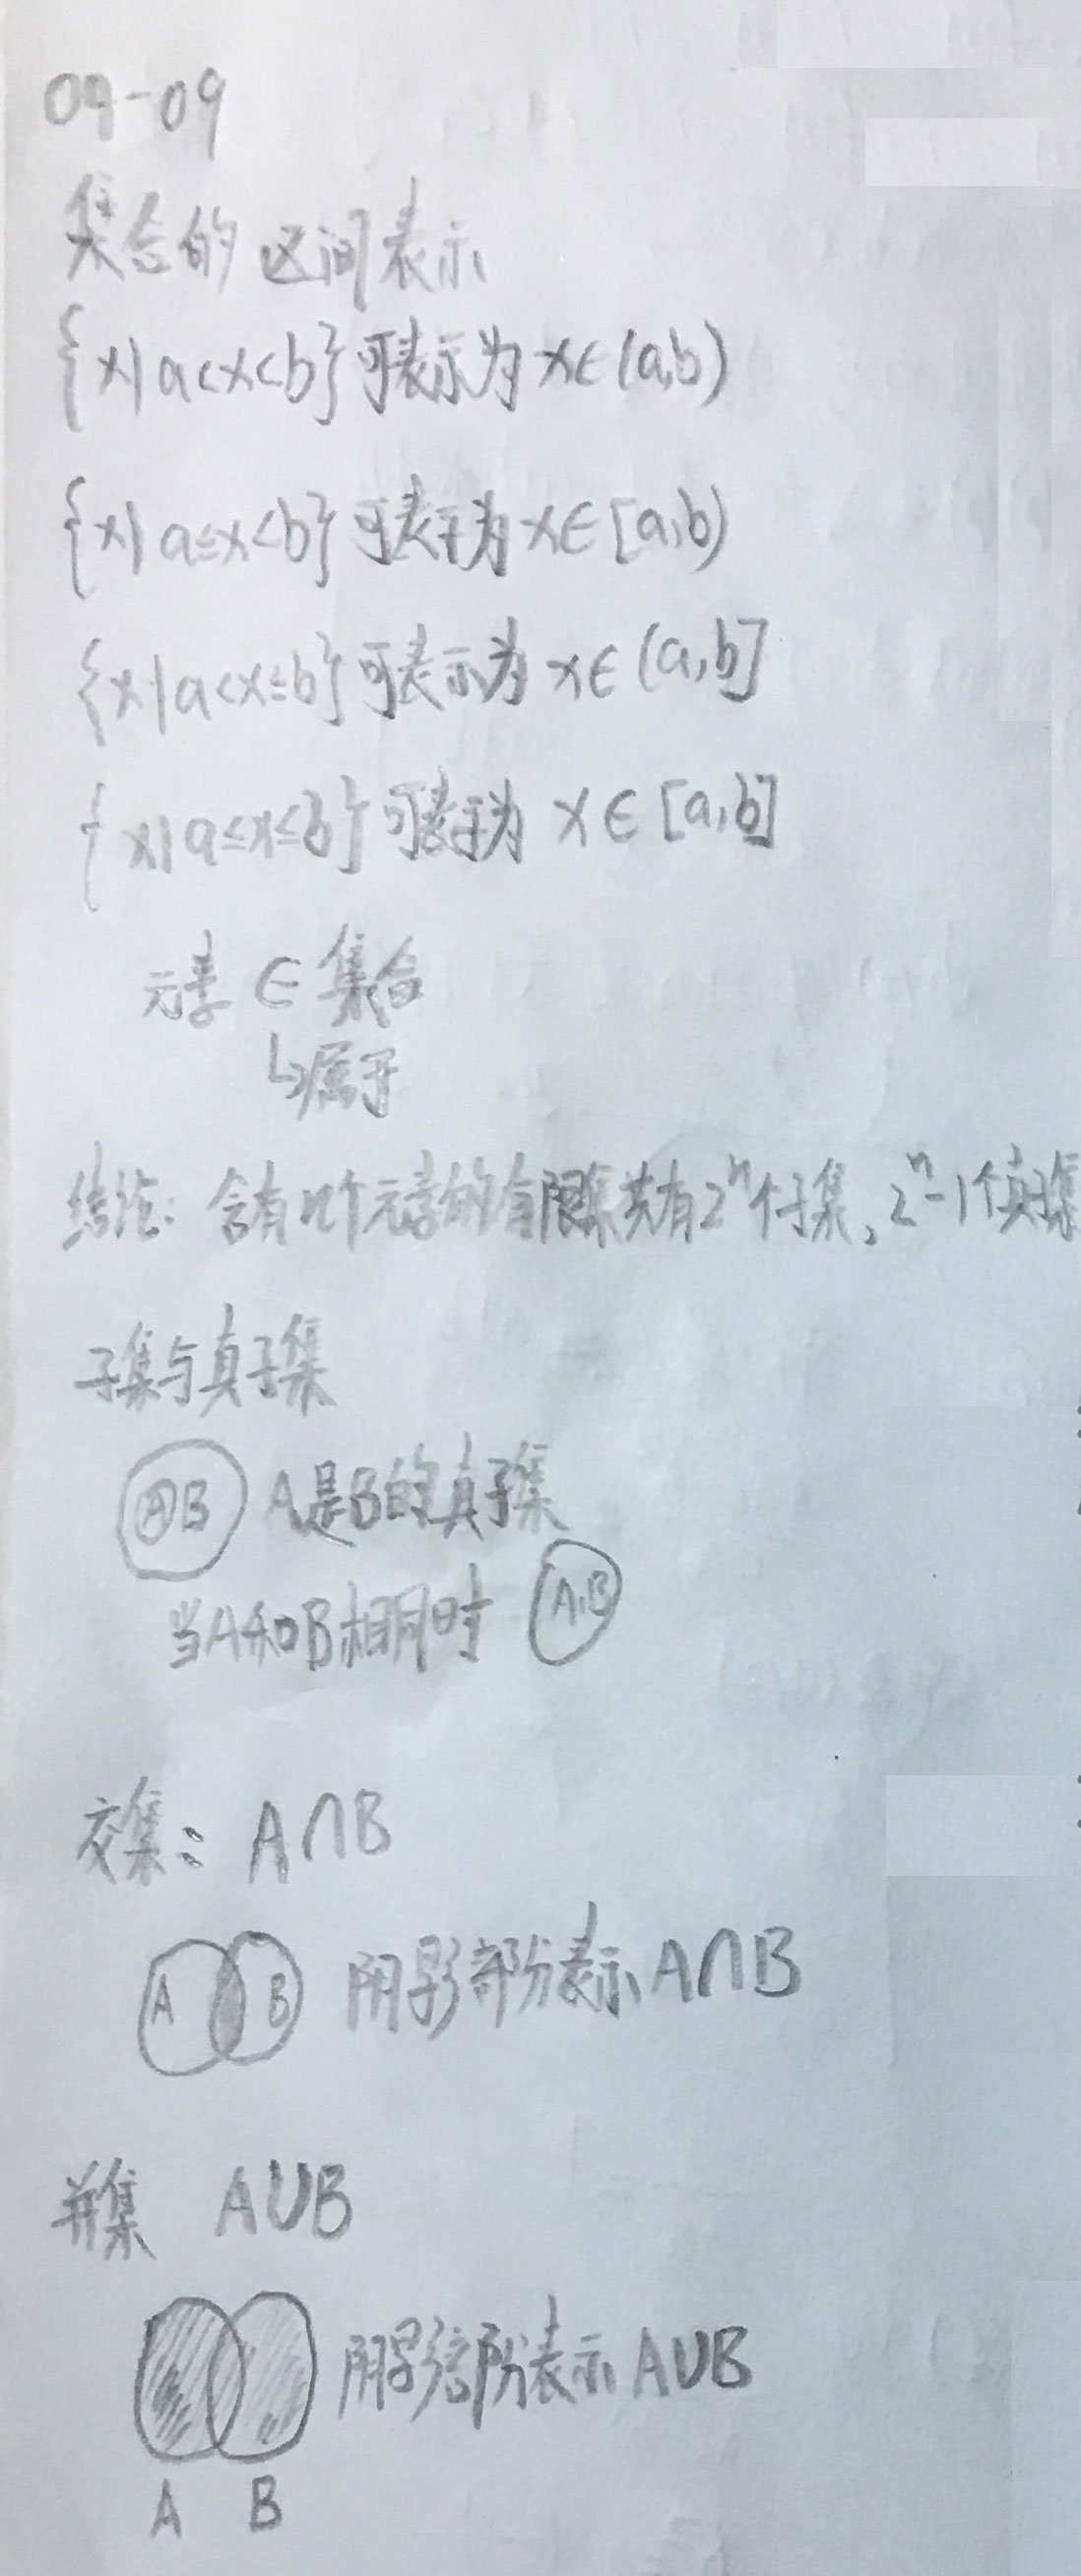 09-09
集合的 区间表示
{x|a<x<b}可表示为 x∈(a,b)
{x|a≤x<b}可表示为 x∈[a,b)
{x|a<x≤b}可表示为 x∈(a,b]
{x|a≤x≤b}可表示为 x∈[a,b]
元素 ∈ 集合
↳属于
结论: 含有n个元素的有限集共有2ⁿ个子集, 2ⁿ-1个真子集
子集与真子集
A B A是B的真子集
当A和B相同时 A,B
交集: A∩B
A B 阴影部分表示A∩B
并集 A∪B
阴影部分表示A∪B
A B